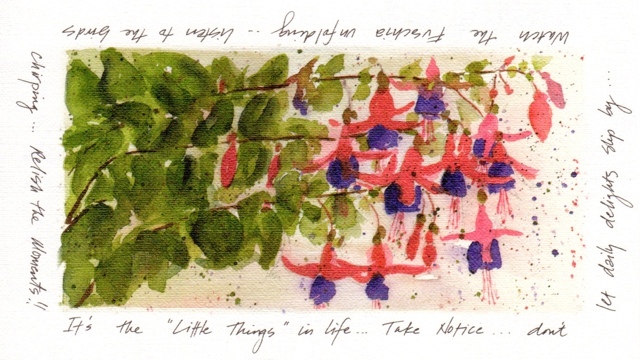 It's the "Little Things" in life... Take Notice... don't
let daily delights slip by...
Watch the Fuschia unfolding... Listen to the birds
chirping... Relish the Moments!!